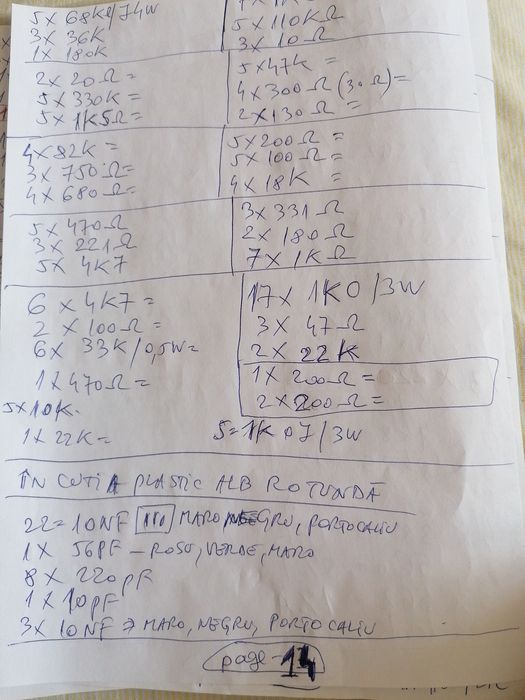 5 X 68K / 4W
3 X 36K
1 X 180K
5 X 110KΩ
3 X 10Ω
2 X 20Ω =
5 X 330K =
5 X 1K5Ω =
5 X 47K =
4 X 300Ω (30Ω) =
2 X 130Ω =
4 X 82K =
3 X 750Ω =
4 X 680Ω =
5 X 200Ω =
5 X 100Ω =
4 X 18K =
5 X 470Ω
3 X 221Ω
5 X 4K7
3 X 331Ω
2 X 180Ω
7 X 1KΩ
6 X 4K7 =
2 X 100Ω =
6 X 33K / 0,5W =
1 X 470Ω =
5 X 10K
1 X 22K =
17 X 1K0 / 3W
3 X 47Ω
2 X 22K
1 X 200Ω =
2 X 200Ω =
5 = 1K0J / 3W
ÎN CUTIA PLASTIC ALB ROTUNDĂ
22 = 10NF MARO, NEGRU, PORTOCALIU
1 X 56PF – ROSU, VERDE, MARO
8 X 220pF
1 X 10pF
3 X 10NF → MARO, NEGRU, PORTOCALIU
page - 14